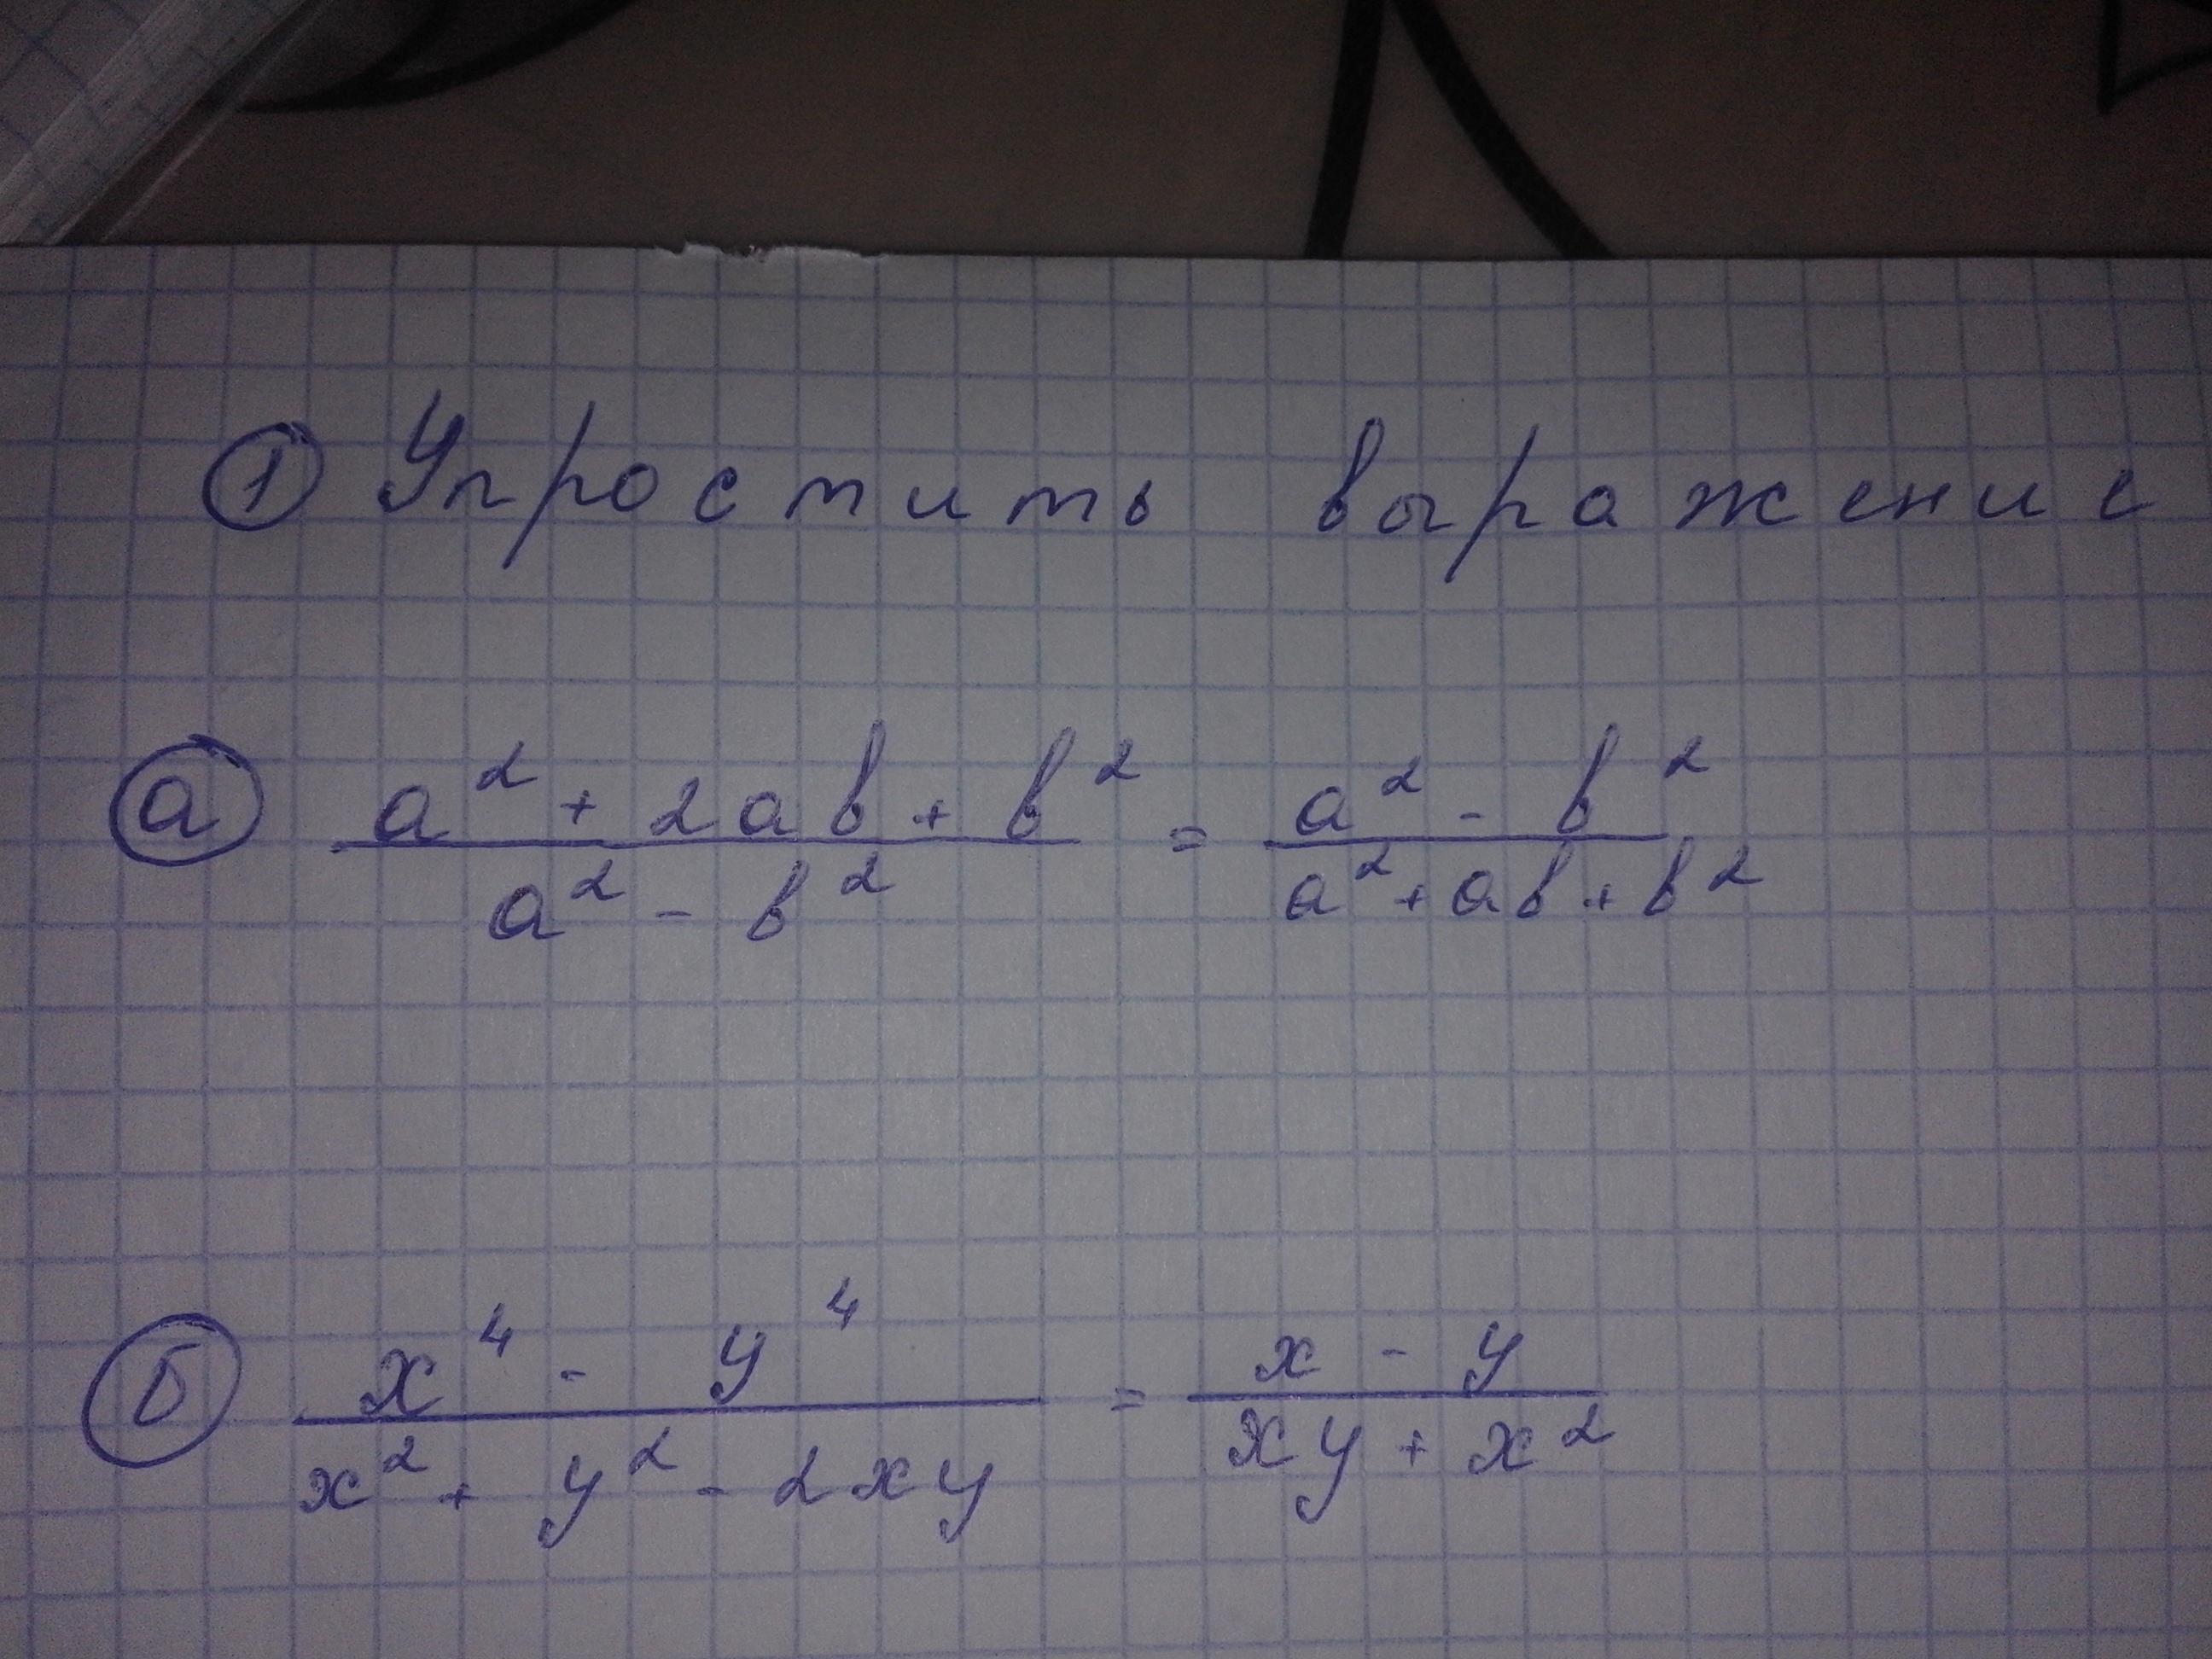 ① Упростить выражение
ⓐ (a² + 2ab + b²)/(a² - b²) = (a² - b²)/(a² + ab + b²)
б (x⁴ - y⁴)/(x² + y² - 2xy) = (x - y)/(xy + x²)